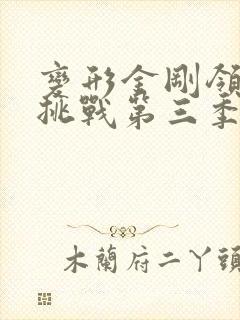 變形金剛領
挑戰第三季
木蘭府二丫頭